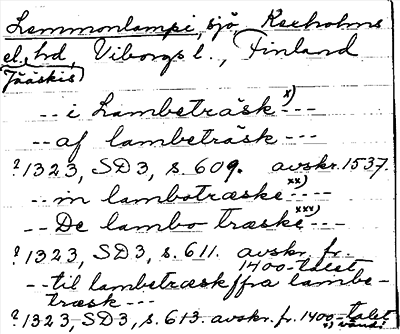 Lemmonlampi, sjö, Kexholms
el. hd, Viborgs l., Finland
Jääskis)
-- i Lambeträsk x) ---
-- af lambeträsk ---
? 1323, SD3, s. 609. avskr. 1537.
-- in lambotræske xx) ---
-- De lambo træske xxx) ---
? 1323, SD3, s. 611. avskr. fr.
1400-talet
-- til lambetræsk // fra lambe-
træsk ---
? 1323, SD3, s. 613. avskr. fr. 1400-talet